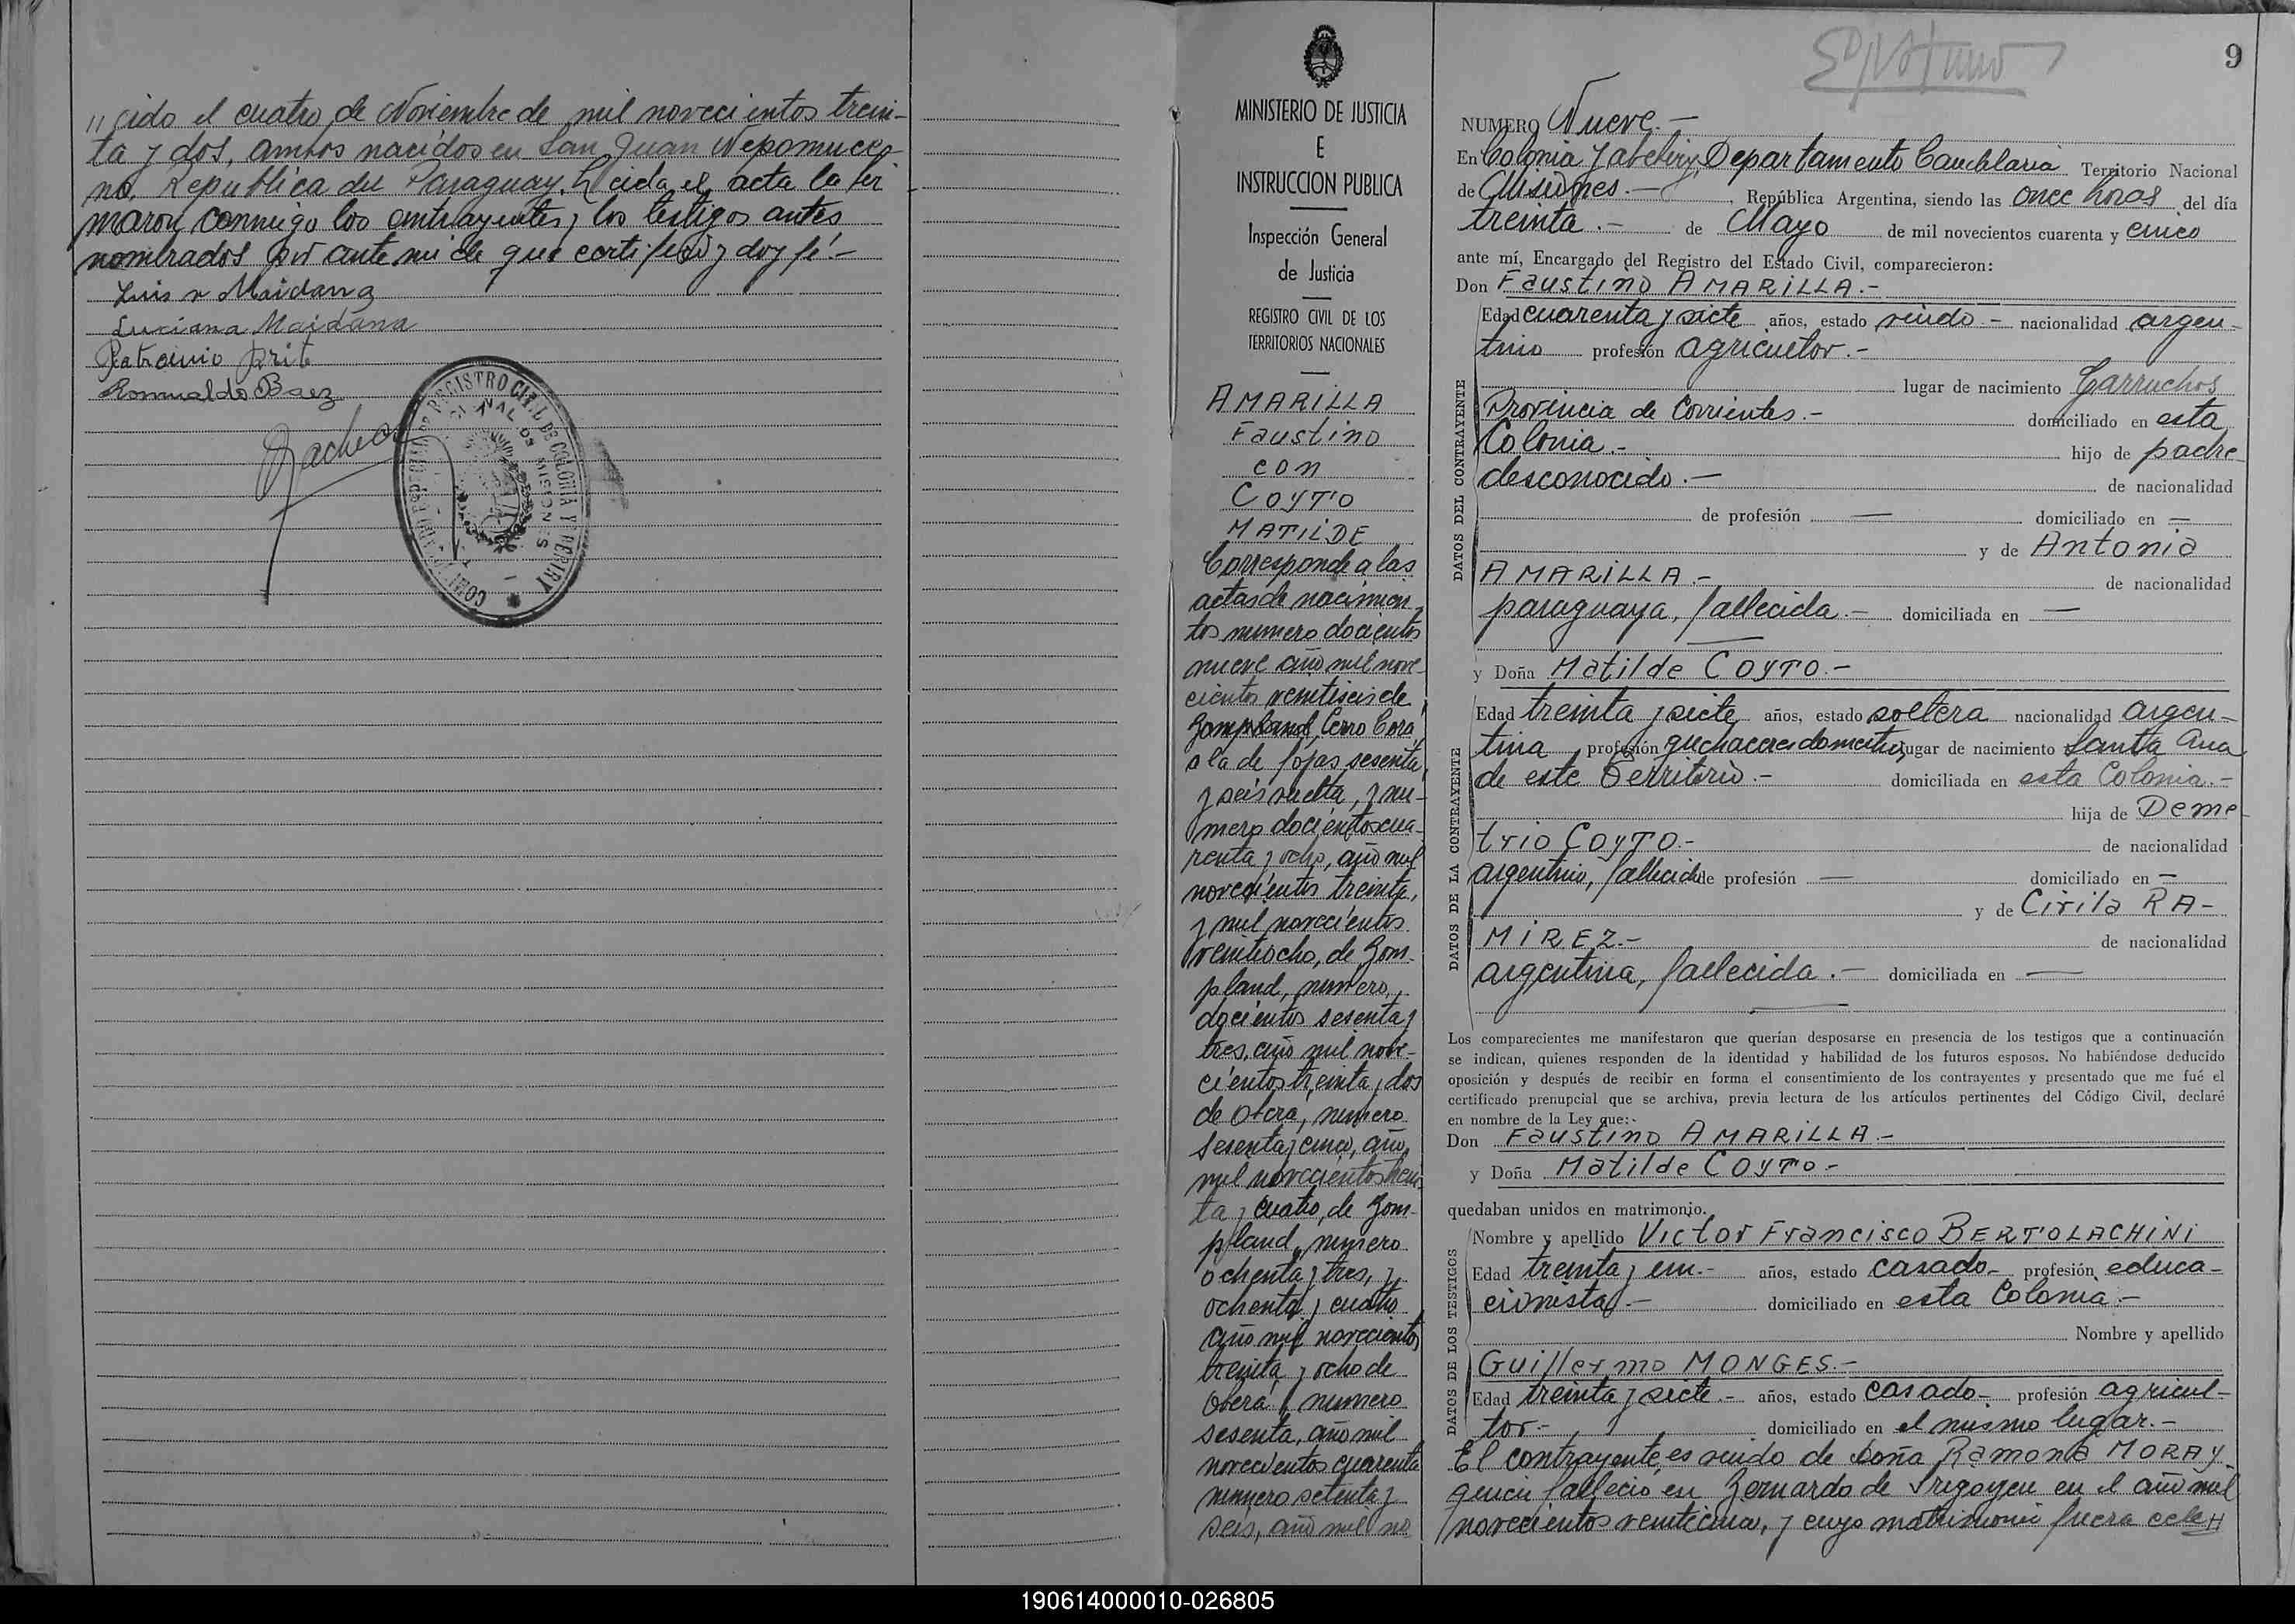 "cido el cuatro de Noviembre de mil novecientos trein-
ta y dos, ambos nacidos en San Juan Nepomuce-
no, Republica del Paraguay. Leida el acta la fir
maron conmigo los contrayentes y los testigos antes
nombrados por ante mi de que certifico y doy fé.-
Luis r Maidana
Luciana Maidana
Patrocinio
Romualdo Baez
REGISTRO CIVIL DE COLONIA YABEBIRY
MISIONES
MINISTERIO DE JUSTICIA
E
INSTRUCCION PUBLICA
Inspección General
de Justicia
REGISTRO CIVIL DE LOS
TERRITORIOS NACIONALES
AMARILLA
Faustino
con
COYTO
MATILDE
Corresponde a las
actas de nacimien
tos numero docientos
nueve año mil nove-
cientos veintiseis de
Bompland, Cerro Corá
a la de fojas sesenta
y seis vuelta, y nu-
mero docientos cua-
renta y ocho, año mil
novecientos treinta,
y mil novecientos
veintiocho, de Bom-
pland, numero
docientos sesenta y
tres, año mil nove-
cientos treinta y dos
de Obera, numero
sesenta y cinco, año
mil novecientos trein-
ta y cuatro, de Bom-
pland, numero
ochenta y tres, y
ochenta y cuatro
año mil novecientos
treinta y ocho de
Oberá, numero
sesenta, año mil
novecientos cuarenta
numero setenta y
seis, año mil no
9
NUMERO Nueve.-
En Colonia Yabebiry, Departamento Candelaria Territorio Nacional
de Misiones.- República Argentina, siendo las once horas del día
treinta.- de Mayo de mil novecientos cuarenta y cinco
ante mí, Encargado del Registro del Estado Civil, comparecieron:
Don Faustino AMARILLA.-
DATOS DEL CONTRAYENTE
Edad cuarenta y siete años, estado viudo.- nacionalidad argen-
tino profesión agricultor.-
lugar de nacimiento Garruchos
Provincia de Corrientes.- domiciliado en esta
Colonia.- hijo de padre
desconocido.- de nacionalidad
de profesión — domiciliado en —
y de Antonia
AMARILLA.- de nacionalidad
paraguaya, fallecida.- domiciliada en —
y Doña Matilde COYTO.-
DATOS DE LA CONTRAYENTE
Edad treinta y siete años, estado soltera nacionalidad argen-
tina profesión quehaceres domesticos, lugar de nacimiento Santa Ana
de este Territorio.- domiciliada en esta Colonia.-
hija de Deme-
trio COYTO.- de nacionalidad
argentino, fallecido de profesión — domiciliado en —
y de Cirila RA-
MIREZ.- de nacionalidad
argentina, fallecida.- domiciliada en —
Los comparecientes me manifestaron que querían desposarse en presencia de los testigos que a continuación
se indican, quienes responden de la identidad y habilidad de los futuros esposos. No habiéndose deducido
oposición y después de recibir en forma el consentimiento de los contrayentes y presentado que me fué el
certificado prenupcial que se archiva, previa lectura de los artículos pertinentes del Código Civil, declaré
en nombre de la Ley que:-
Don Faustino AMARILLA.-
y Doña Matilde COYTO.-
quedaban unidos en matrimonio.
DATOS DE LOS TESTIGOS
Nombre y apellido Victor Francisco BERTOLACHINI
Edad treinta y un.- años, estado casado- profesión educa-
cionista.- domiciliado en esta Colonia.-
Nombre y apellido
Guillermo MONGES.-
Edad treinta y siete.- años, estado casado- profesión agricul-
tor.- domiciliado en el mismo lugar.-
El contrayente, es viudo de Doña Ramona MORAY
quien fallecio en Bernardo de Irigoyen en el año mil
novecientos veinticinco, y cuyo matrimonio fuera cele
190614000010-026805